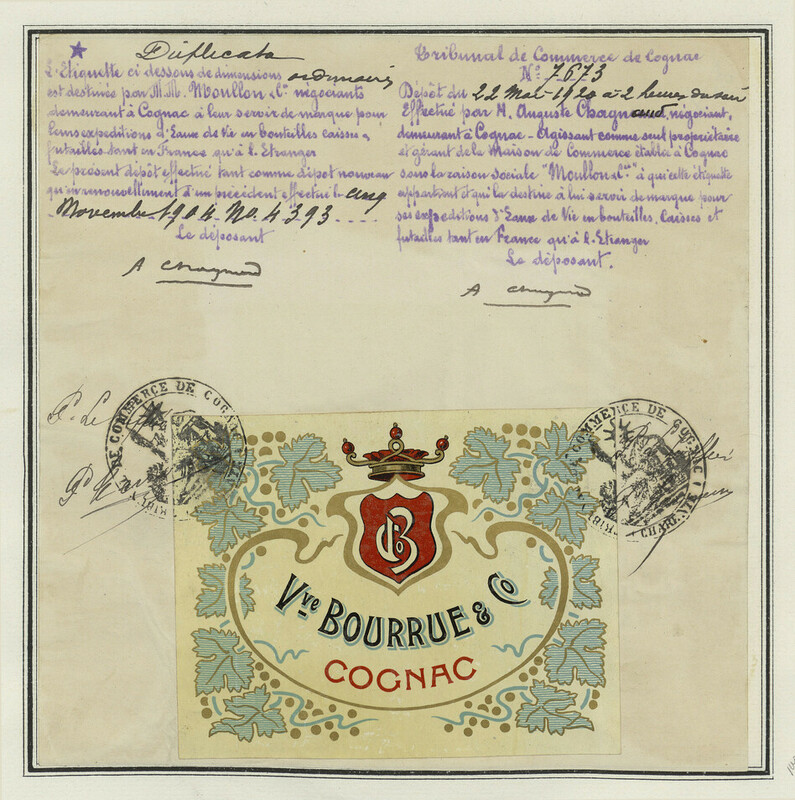 Duplicata
L'Etiquette ci dessous de dimensions ordinaires
est destinée par M.M. Moullon & Cie négociants
demeurant à Cognac à leur servir de marque pour
leurs expeditions d'Eaux de Vie en bouteilles caisses
futailles tant en France qu'à l'Etranger
Le présent dépôt effectué tant comme dépôt nouveau
qu'en renouvellement d'un précédent effectué le cinq
Novembre 1904 No. 4393
Le déposant
A Chagnaud
Tribunal de Commerce de Cognac
No 7673
Dépôt du 22 Mai 1920 à 2 heures du soir
Effectué par M. Auguste Chagnaud, négociant,
demeurant à Cognac - Agissant comme seul propriétaire
et gérant de la Maison de Commerce établie à Cognac
sous la raison sociale "Moullon & Cie" à qui cette étiquette
appartient et qui la destine à lui servir de marque pour
ses expeditions d'Eaux de Vie en bouteilles, Caisses et
futailles tant en France qu'à l'Etranger
Le déposant.
A Chagnaud
DE COMMERCE DE COGNAC
COMMERCE DE COGNAC
CHARENTE
B Co
Vve BOURRUE & Co
COGNAC